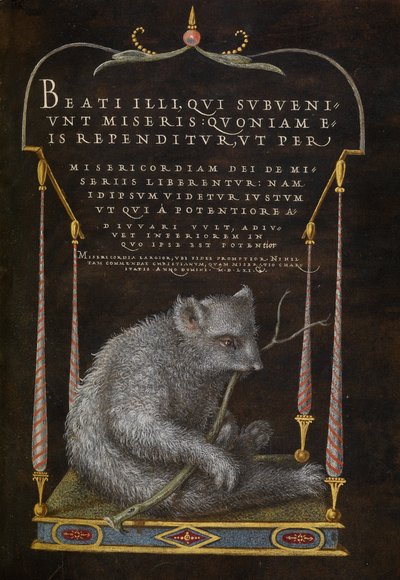 BEATI ILLI, QVI SVBVENI〃
VNT MISERIS: QVONIAM E〃
IS REPENDITVR, VT PER
MISERICORDIAM DEI DE MI〃
SERIIS LIBERENTVR: NAM
ID IPSVM VIDETVR IVSTVM
VT QVI Á POTENTIORE A〃
DIVVARI VVLT, ADIV〃
VET INFERIOREM IN
QVO IPSE EST POTENtior
MISERICORDIA LARGIOR, VBI FIDES PROMPTIOR. NIHIL
TAM COMMENDAT CHRISTIANVM, QVAM MISERATIO CHARI
TATIS ANNO DOMINI · M·D·LXI·